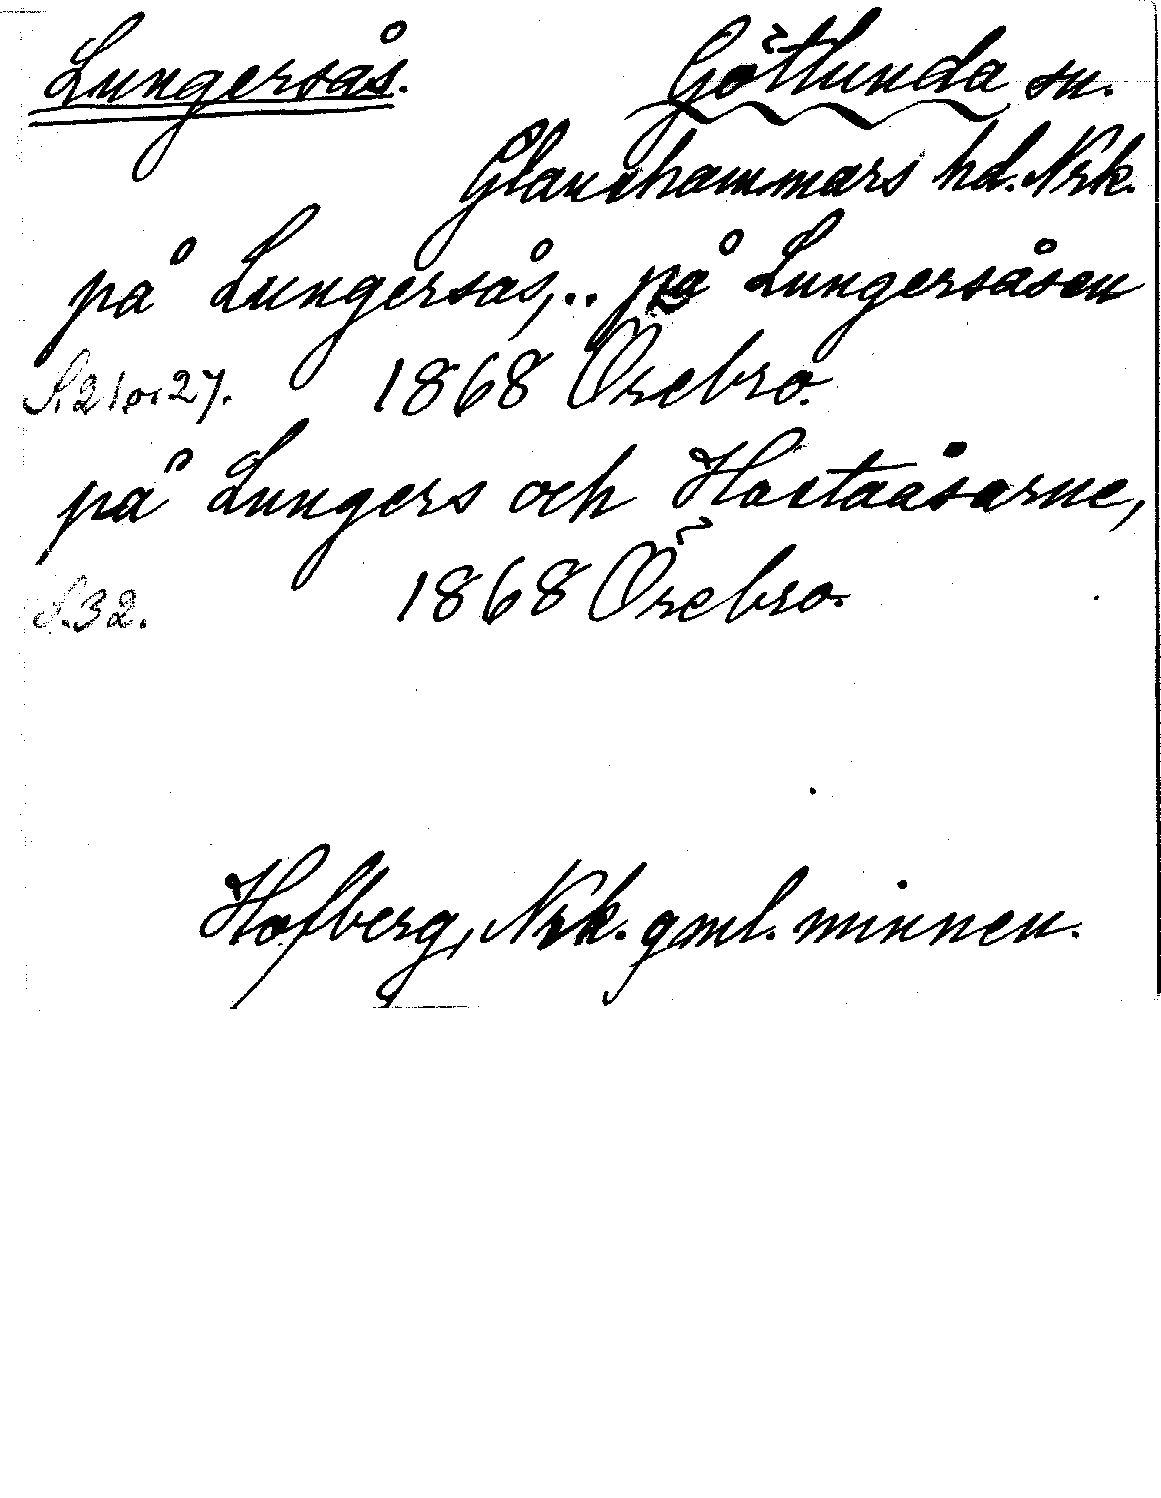 Lungersås. Götlunda sn.
Glanshammars hd. Nrk.
på Lungersås,.. på Lungersåsen
S. 21 o. 27. 1868 Örebro.
på Lungers och Hastaåsarne,
S. 32. 1868 Örebro.
Hofberg, Nrk. gml. minnen.